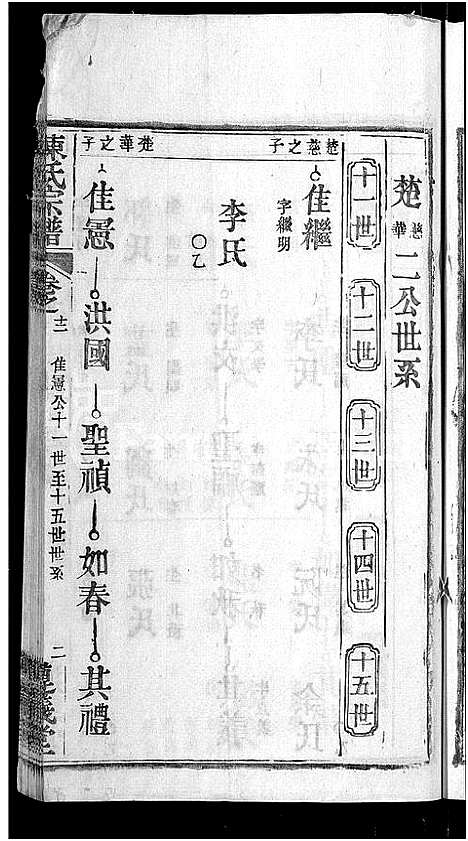 楚慈華二公世系
十一世 十二世 十三世 十四世 十五世
楚慈之子
佳繼 字繼明
李氏 〇乙
楚華之子
佳憲 洪國 聖禎 如春 其禮
陳氏宗譜 卷之十二 佳憲公十一世至十五世世系 二